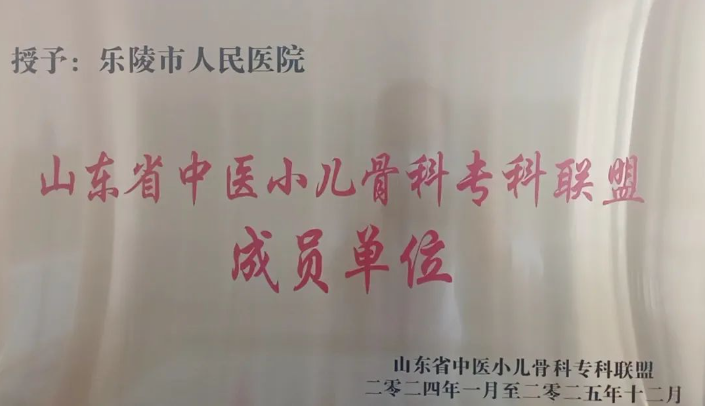 授予：乐陵市人民医院
山东省中医小儿骨科专科联盟
成员单位
山东省中医小儿骨科专科联盟
二零二四年一月至二零二五年十二月